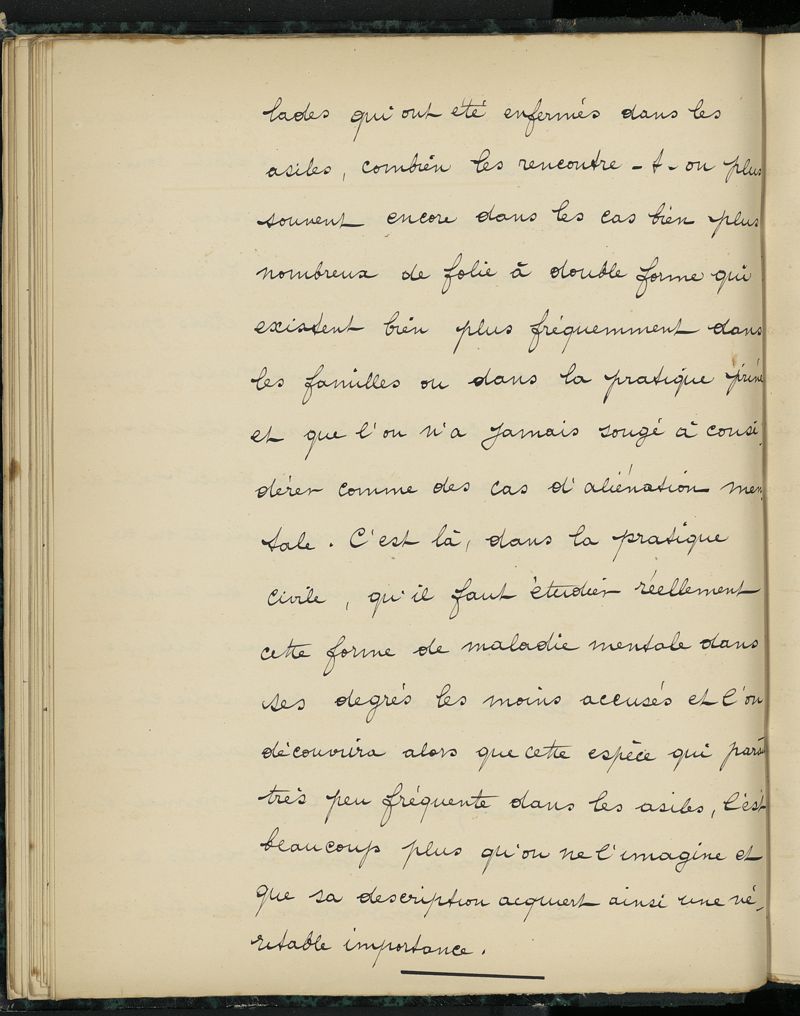 lades qui ont été enfermés dans les
asiles, combien les rencontre-t-on plus
souvent encore dans les cas bien plus
nombreux de folie à double forme qui
existent bien plus fréquemment dans
les familles ou dans la pratique privée
et que l'on n'a jamais songé à consi-
dérer comme des cas d'aliénation men-
tale. C'est là, dans la pratique
civile, qu'il faut étudier réellement
cette forme de maladie mentale dans
ses degrés les moins accusés et l'on
découvrira alors que cette espèce qui paraît
très peu fréquente dans les asiles, l'est
beaucoup plus qu'on ne l'imagine et
que sa description acquiert ainsi une vé-
ritable importance.